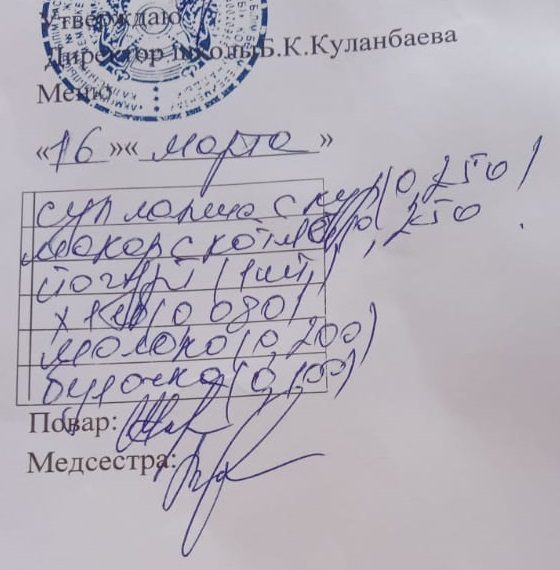 Утверждаю
Директор школы Б.К.Куланбаева
Меню
«16» «марта»
суп лапша с кур (0,250)
макар с котл (0,250
йогурт (1шт)
хлеб (0 080)
молоко (0,200)
булочка (0,100)
Повар:
Медсестра: